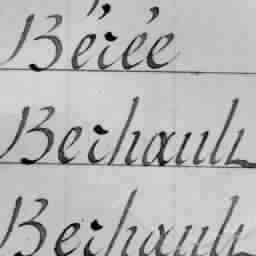 Bérée
Berhault
Berhault